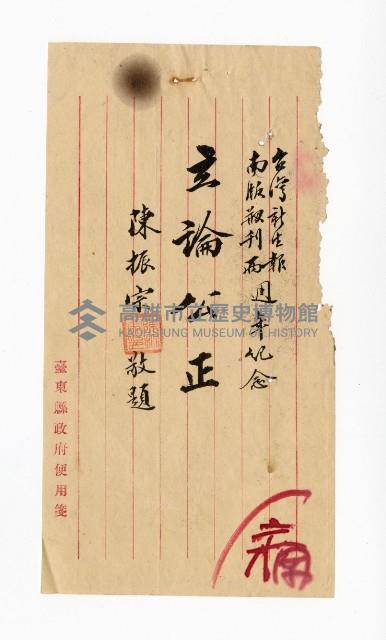 台灣新生報
南版發刊兩週年紀念
立論公正
陳振宗 敬題
臺東縣政府便用箋
高雄市立歷史博物館
KAOHSIUNG MUSEUM OF HISTORY